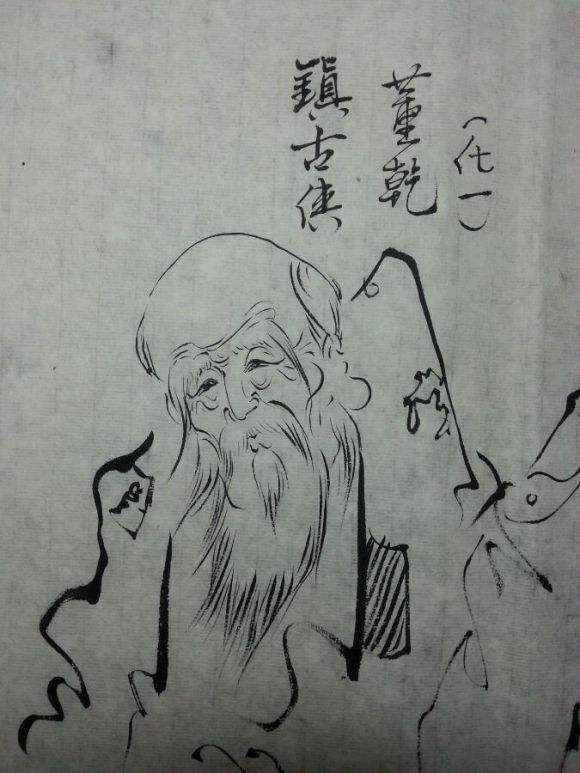 （化一）
董乾
鎮古俠